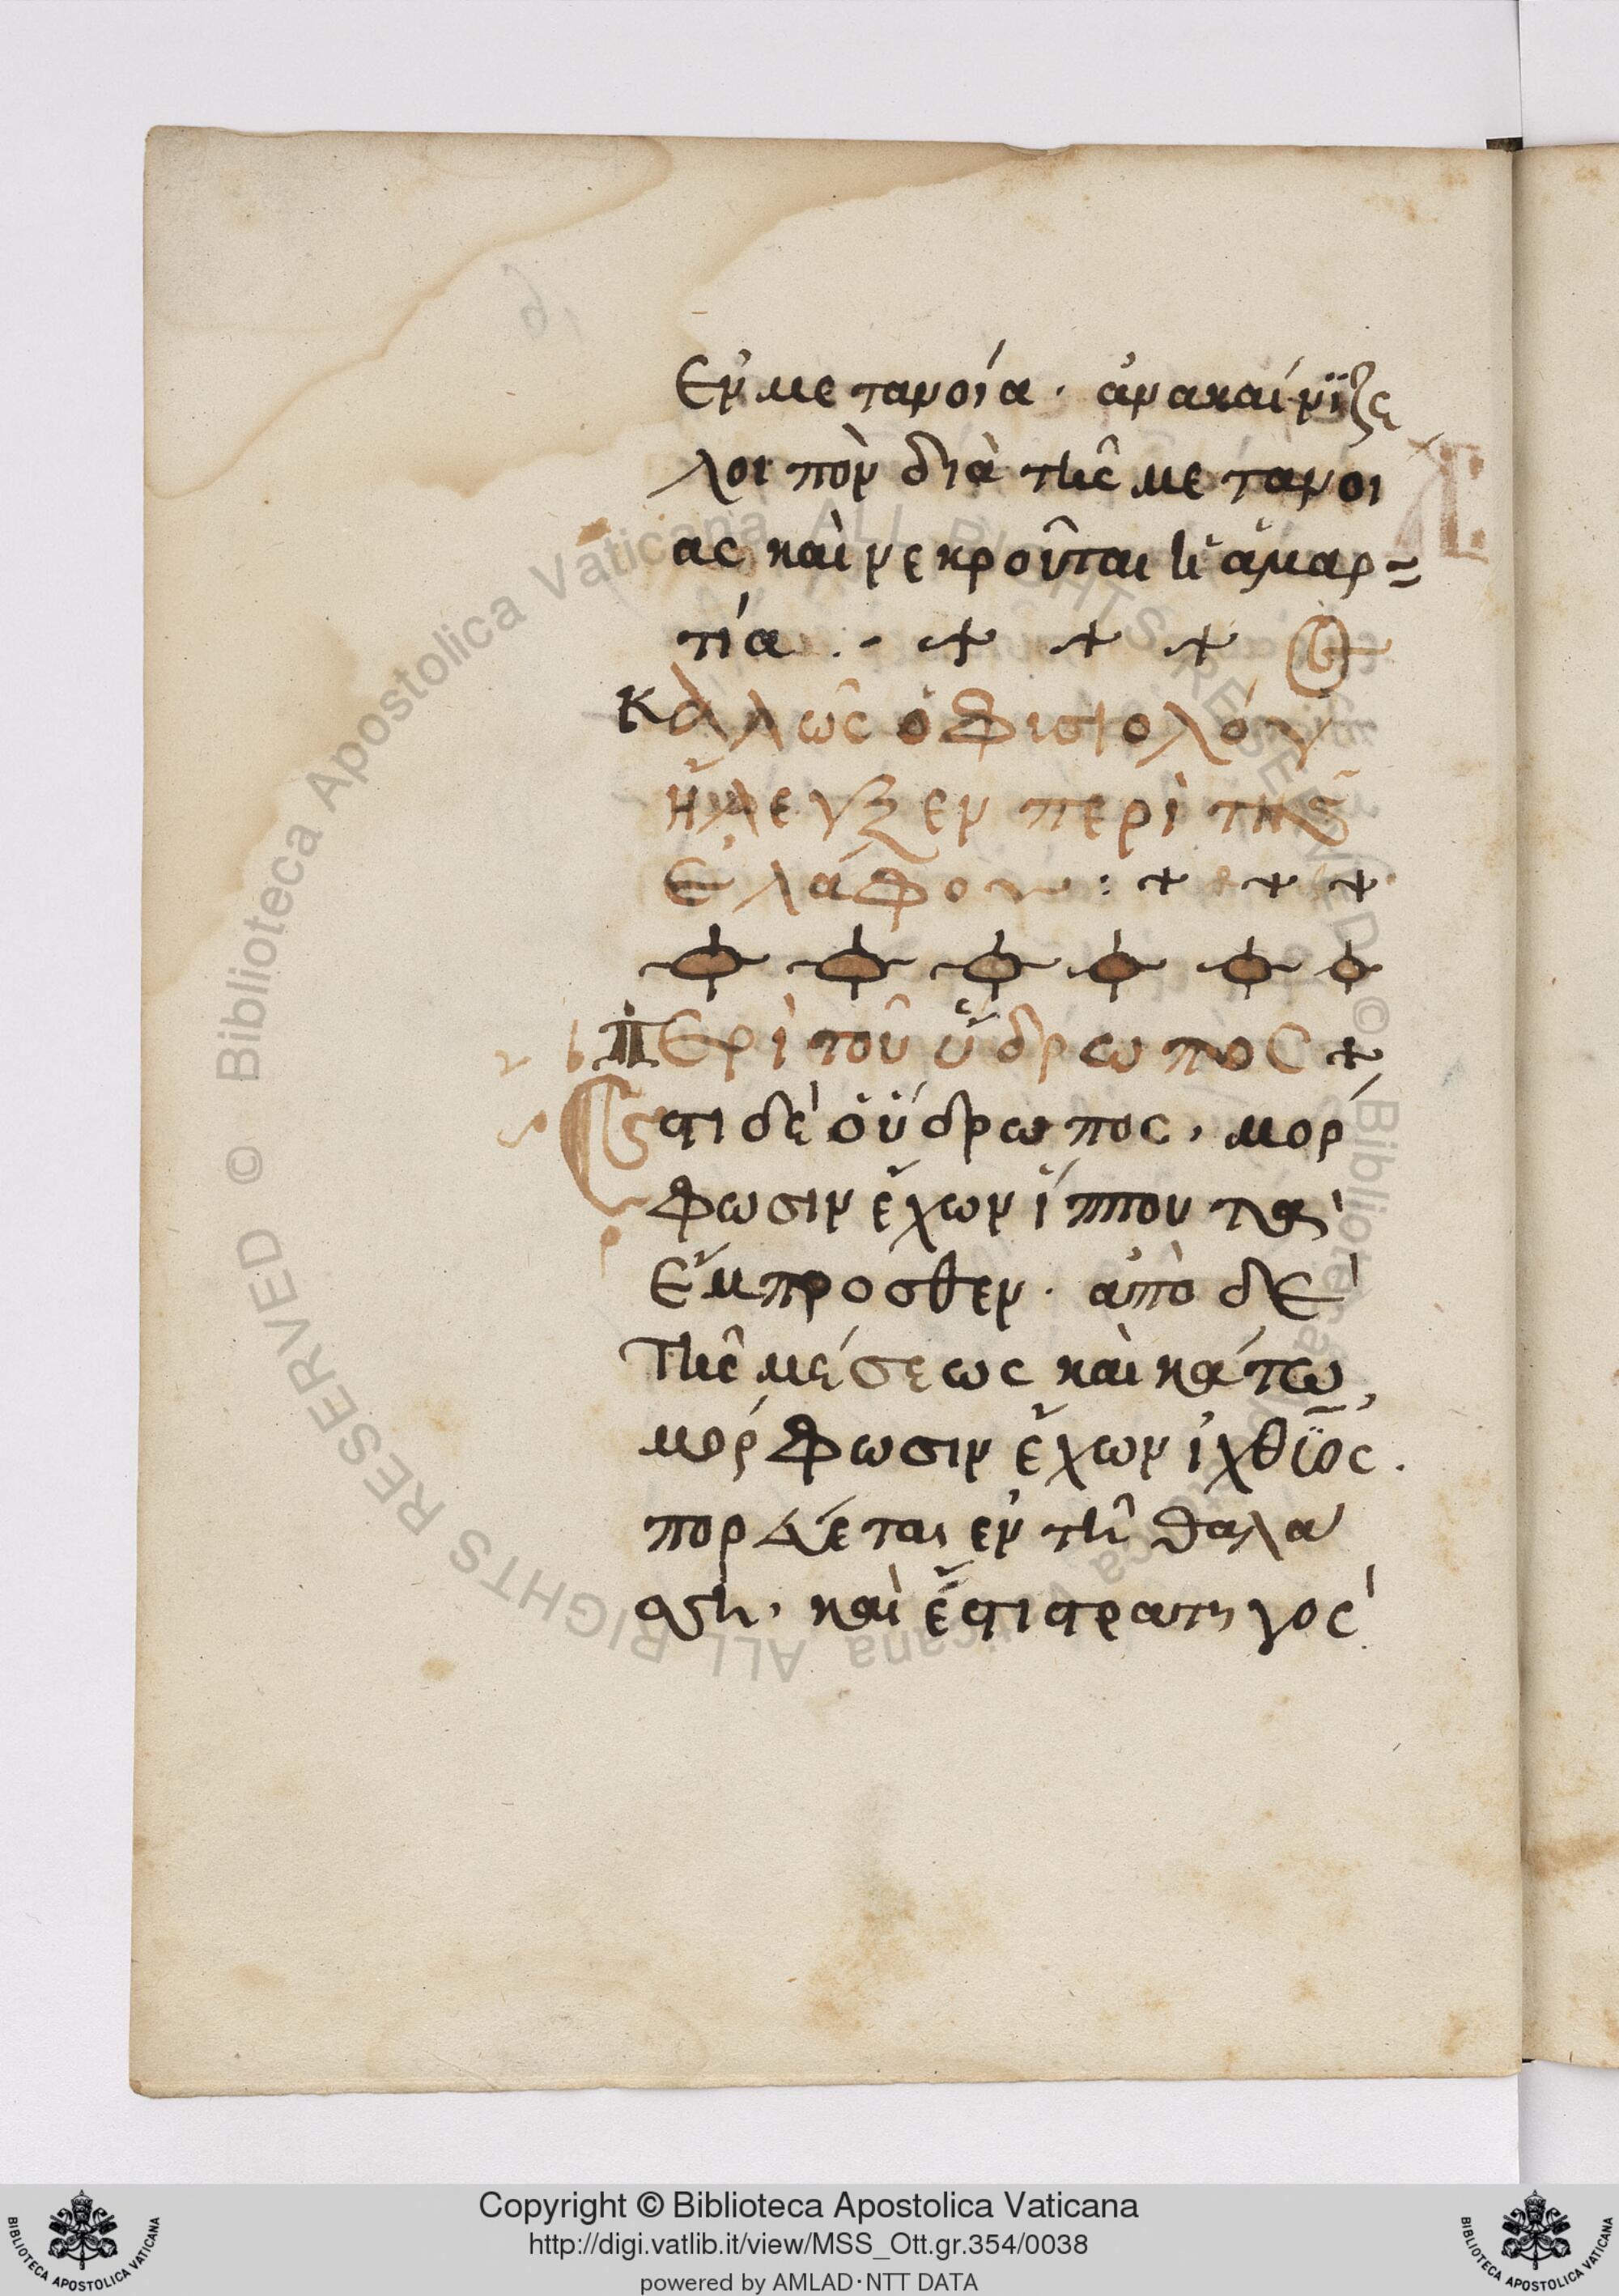 Ἐν μετανοία · ἀνακαίνϊζε
λοιπὸν διὰ τῆς μετανοι
ας καὶ νεκροῦται ἡ ἁμαρ=
τία .- + + +
Καλῶς ὁ φισιολόγ
ἤλεγξεν περὶ τῆς
ἐλάφου : + + +
Περὶ τοῦ ὕδρωπος +
Ἔστι δὲ ὁ ὕδρωπος, μορ
φωσιν ἔχων ἵππου τὰ
ἔμπροσθεν · ἀπὸ δὲ
τῆς μέσεως καὶ κάτω,
μόρφωσιν ἔχων ἰχθϋος .
πορεύεται ἐν τῆ θαλα
σση, καὶ ἔστι στρατηγος
Copyright © Biblioteca Apostolica Vaticana
http://digi.vatlib.it/view/MSS_Ott.gr.354/0038
powered by AMLAD·NTT DATA
BIBLIOTECA APOSTOLICA VATICANA
BIBLIOTECA APOSTOLICA VATICANA